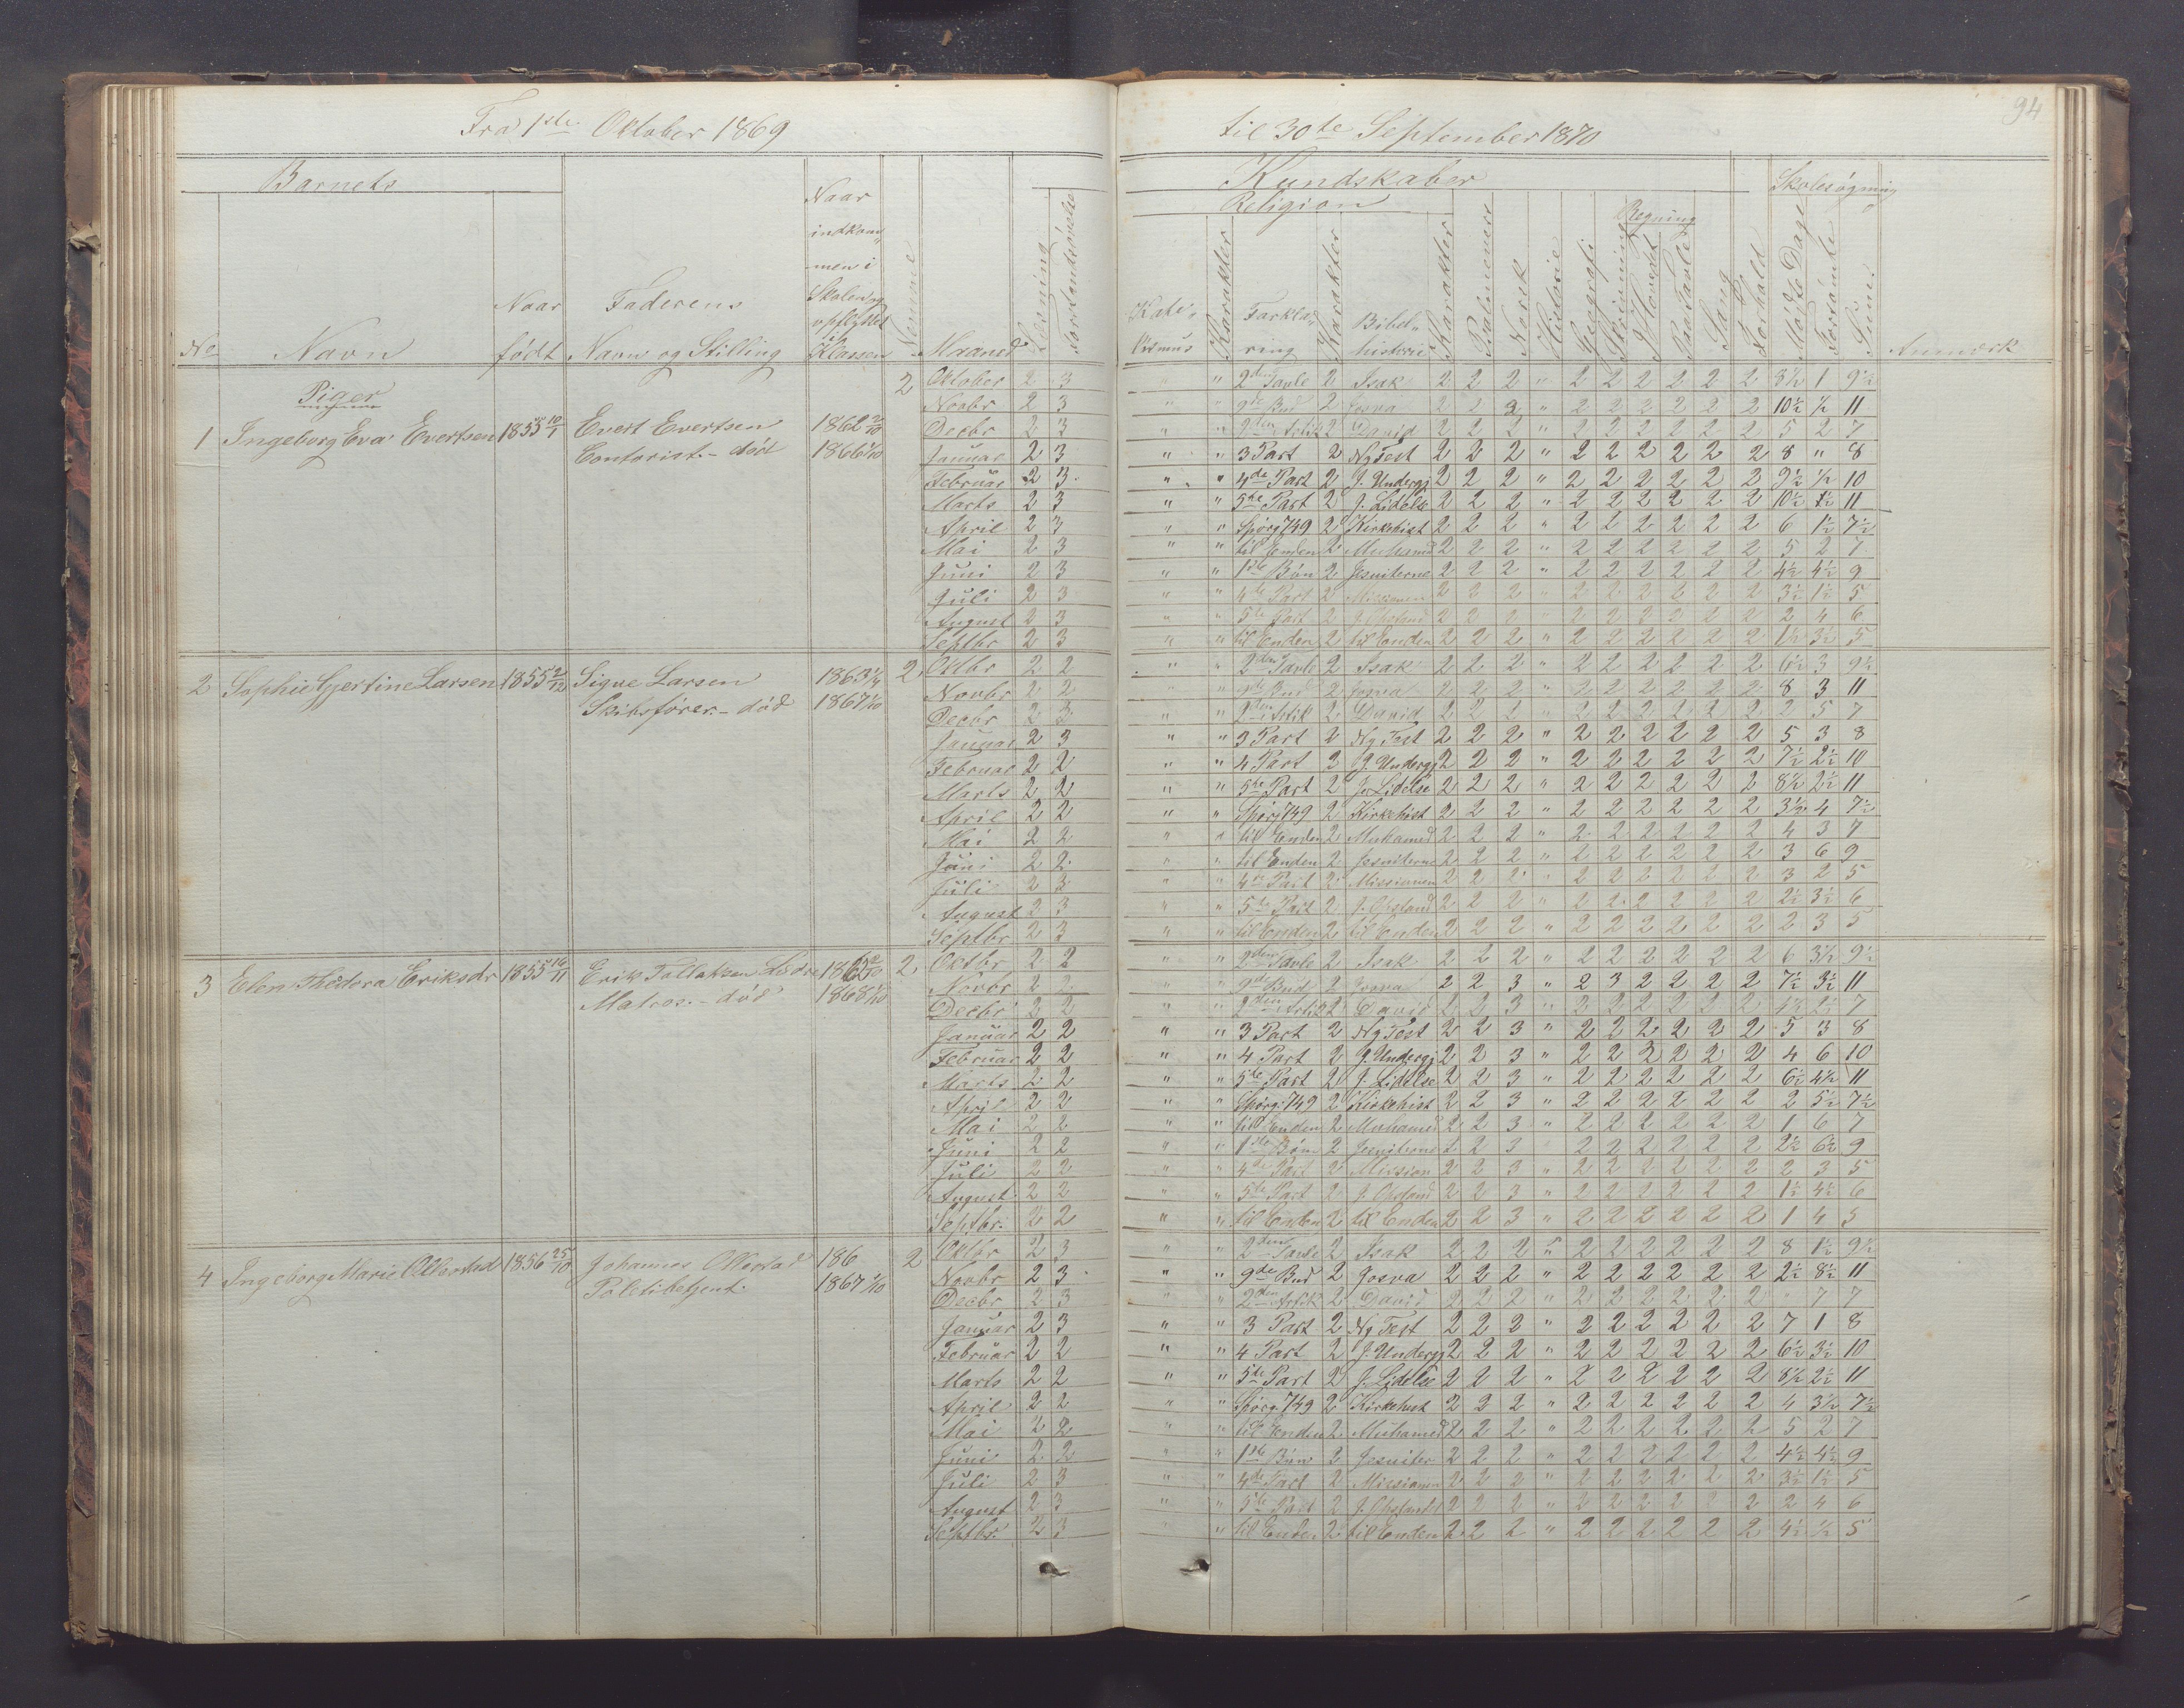 94
Fra 1ste Oktober 1869 til 30te September 1870
Barnets
No Navn Naar født
Faderens Navn og Stilling
Naar indkommen i Skolen og opflyttet i Klassen
Maaned
Læsning
Forstandsøvelse
Kundskaber
Religion
Katekismus
Karakter
Forklaring
Karakter
Bibelhistorie
Karakter
Psalmevers
Norsk
Historie
Geografi
Skrivning
Regning
I Hovedet
Paa Tavle
Sang
Forhold
Skolesøgning
Mødte Dage
Forsømte
Sum
Anmærk
Piger
1 Ingeborg Eva Evertsen 1855 10/1 Evert Evertsen 1862 2/10
Contorist - død 1866 1/10
2
Oktober 2 3 " " 2den Tavle 2 Isak 2 2 2 " 2 2 2 2 2 2 8½ 1 9½
Novbr 2 3 " " 9de Bud 2 Josva 2 2 2 " 2 2 2 2 2 2 10½ ½ 11
Decbr 2 3 " " 2den Artik 2 David 2 2 2 " 2 2 2 2 2 2 5 2 7
Januar 2 3 " " 3 Part 2 Ny Test 2 2 2 " 2 2 2 2 2 2 8 " 8
Februar 2 3 " " 4de Part 2 J. Undergj 2 2 2 " 2 2 2 2 2 2 9½ ½ 10
Marts 2 3 " " 5te Part 2 J. Lidelse 2 2 2 " 2 2 2 2 2 2 10½ ½ 11
April 2 3 " " Spørg 749 2 Kirkehist 2 2 2 " 2 2 2 2 2 2 6 1½ 7½
Mai 2 3 " " til Enden 2 Muhamed 2 2 2 " 2 2 2 2 2 2 5 2 7
Juni 2 3 " " 1ste Bøn 2 Jesuiterne 2 2 2 " 2 2 2 2 2 2 4½ 4½ 9
Juli 2 3 " " 4de Part 2 Missionen 2 2 2 " 2 2 2 2 2 2 3½ 1½ 5
August 2 3 " " 5te Part 2 J. Opstand 2 2 2 " 2 2 2 2 2 2 2 4 6
Septbr 2 3 " " til Enden 2 til Enden 2 2 2 " 2 2 2 2 2 2 1½ 3½ 5
2 Sophie Gjertine Larsen 1855 2/12 Sigve Larsen 1863 1/4
Skibsfører - død 1867 1/10
2
Oktbr 2 2 " " 2den Tavle 2 Isak 2 2 2 " 2 2 2 2 2 2 6½ 3 9½
Novbr 2 2 " " 9de Bud 2 Josva 2 2 2 " 2 2 2 2 2 2 8 3 11
Decbr 2 3 " " 2den Artik 2 David 2 2 2 " 2 2 2 2 2 2 2 5 7
Januar 2 3 " " 3 Part 2 Ny Test 2 2 2 " 2 2 2 2 2 2 5 3 8
Februar 2 2 " " 4 Part 2 J. Undergj 2 2 2 " 2 2 2 2 2 2 7½ 2½ 10
Marts 2 2 " " 5te Part 2 J. Lidelse 2 2 2 " 2 2 2 2 2 2 8½ 2½ 11
April 2 2 " " Spørg 749 2 Kirkehist 2 2 2 " 2 2 2 2 2 2 3½ 4 7½
Mai 2 2 " " til Enden 2 Muhamed 2 2 2 " 2 2 2 2 2 2 4 3 7
Juni 2 2 " " til Enden 2 Jesuiterne 2 2 2 " 2 2 2 2 2 2 3 6 9
Juli 2 3 " " 4de Part 2 Missionen 2 2 2 " 2 2 2 2 2 2 3 2 5
August 2 3 " " 5te Part 2 J. Opstand 2 2 2 " 2 2 2 2 2 2 2½ 3½ 6
Septbr 2 3 " " til Enden 2 til Enden 2 2 2 " 2 2 2 2 2 2 2 3 5
3 Elen Thedora Eriksdr 1855 14/11 Erik Tollaksen 1865 2/10
Matros - død 1868 1/10
2
Oktbr 2 2 " " 2den Tavle 2 Isak 2 2 2 " 2 2 2 2 2 2 6 3½ 9½
Novbr 2 2 " " 9de Bud 2 Josva 2 2 3 " 2 3 2 2 2 2 7½ 3½ 11
Decbr 2 2 " " 2den Artik 2 David 2 2 3 " 2 2 2 2 2 2 4½ 2½ 7
Januar 2 2 " " 3 Part 2 Ny Test 2 2 3 " 2 2 2 2 2 2 5 3 8
Februar 2 2 " " 4 Part 2 J. Undergj 2 2 3 " 2 2 2 2 2 2 4 6 10
Marts 2 2 " " 5te Part 2 J. Lidelse 2 2 3 " 2 2 2 2 2 2 6½ 4½ 11
April 2 2 " " Spørg 749 2 Kirkehist 2 2 3 " 2 2 2 2 2 2 2 5½ 7½
Mai 2 2 " " til Enden 2 Muhamed 2 2 3 " 2 2 2 2 2 2 1 6 7
Juni 2 2 " " 1ste Bøn 2 Jesuiterne 2 2 3 " 2 2 2 2 2 2 2½ 6½ 9
Juli 2 2 " " 4de Part 2 Mission 2 2 3 " 2 2 2 2 2 2 2 3 5
August 2 2 " " 5te Part 2 J. Opstand 2 2 3 " 2 2 2 2 2 2 1½ 4½ 6
Septbr. 2 2 " " til Enden 2 til Enden 2 2 3 " 2 2 2 2 2 2 1 4 5
4 Ingeborg Marie Ollestad 1856 25/10 Johannes Ollestad 186
Politibetjent. 1867 1/10
2
Oktbr 2 3 " " 2den Tavle 2 Isak 2 2 2 " 2 2 2 2 2 2 8 1½ 9½
Novbr 2 3 " " 9de Bud 2 Josva 2 2 2 " 2 2 2 2 2 2 2½ 8½ 11
Decbr 2 3 " " 2den Artik 2 David 2 2 2 " 2 2 2 2 2 2 " 7 7
Januar 2 3 " " 3 Part 2 Ny Test 2 2 2 " 2 2 2 2 2 2 7 1 8
Februar 2 2 " " 4 Part 2 J. Undergj 2 2 2 " 2 2 2 2 2 2 6½ 3½ 10
Marts 2 2 " " 5te Part 2 J. Lidelse 2 2 2 " 2 2 2 2 2 2 8½ 2½ 11
April 2 2 " " Spørg. 749 2 Kirkehist 2 2 2 " 2 2 2 2 2 2 4 3½ 7½
Mai 2 2 " " til Enden 2 Muhamed 2 2 2 " 2 2 2 2 2 2 5 2 7
Juni 2 2 " " 1ste Bøn 2 Jesuiter 2 2 2 " 2 2 2 2 2 2 4½ 4½ 9
Juli 2 3 " " 4de Part 2 Missionen 2 2 2 " 2 2 2 2 2 2 3½ 1½ 5
August 2 3 " " 5te Part 2 J. Opstand 2 2 2 " 2 2 2 2 2 2 2 4 6
Septbr. 2 3 " " til Enden 2 til Enden 2 2 2 " 2 2 2 2 2 2 4½ ½ 5